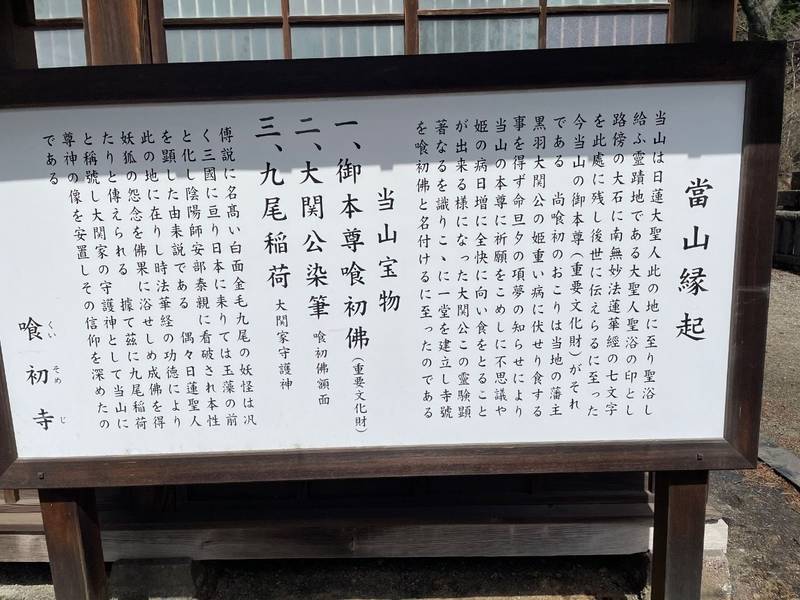 當山縁起
当山は日蓮大聖人此の地に至り聖浴し
給ふ霊蹟地である大聖人聖浴の印とし
路傍の大石に南無妙法蓮華經の七文字
を此處に残し後世に伝えらるに至った
今当山の御本尊(重要文化財)がそれ
である 尚喰初のおこりは当地の藩主
黒羽大関公の姫重い病に伏せり食する
事を得ず命旦夕の項夢の知らせにより
当山の本尊に祈願をこめしに不思議や
姫の病日増に全快に向い食をとること
が出来る様になった大関公この霊験顕
著なるを識りこゝに一堂を建立し寺號
を喰初佛と名付けるに至ったのである
当山宝物
一、御本尊喰初佛(重要文化財)
二、大関公染筆 喰初佛額面
三、九尾稲荷 大関家守護神
傳説に名髙い白面金毛九尾の妖怪は汎
く三國に亘り日本に来りては玉藻の前
と化し陰陽師安部泰親に看破され本性
を顕した由来説である 偶々日蓮聖人
此の地に在りし時法華経の功徳により
妖狐の怨念を佛果に浴せしめ成佛を得
たりと傳えられる 據て茲に九尾稲荷
と稱號し大関家の守護神として当山に
尊神の像を安置しその信仰を深めたの
である
喰初寺
くい そめ じ